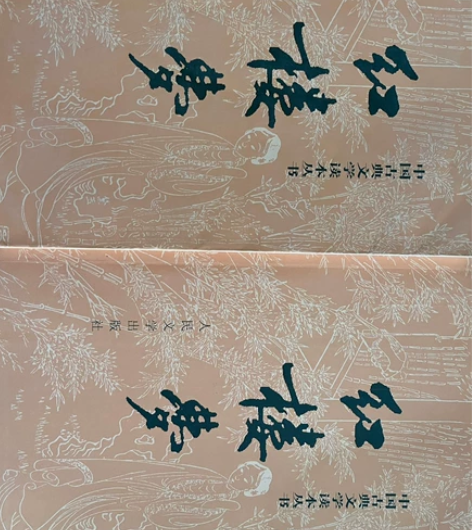 中国古典文学读本丛书
红楼梦
中国古典文学读本丛书
红楼梦
人民文学出版社